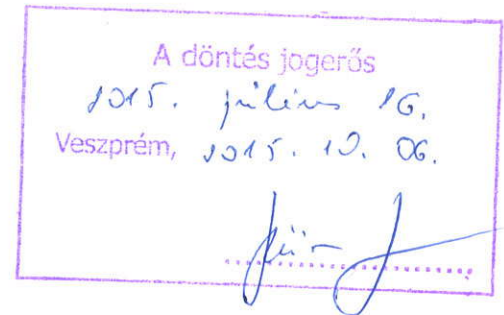 A döntés jogerős
2015. július 16.
Veszprém, 2015. 10. 06.